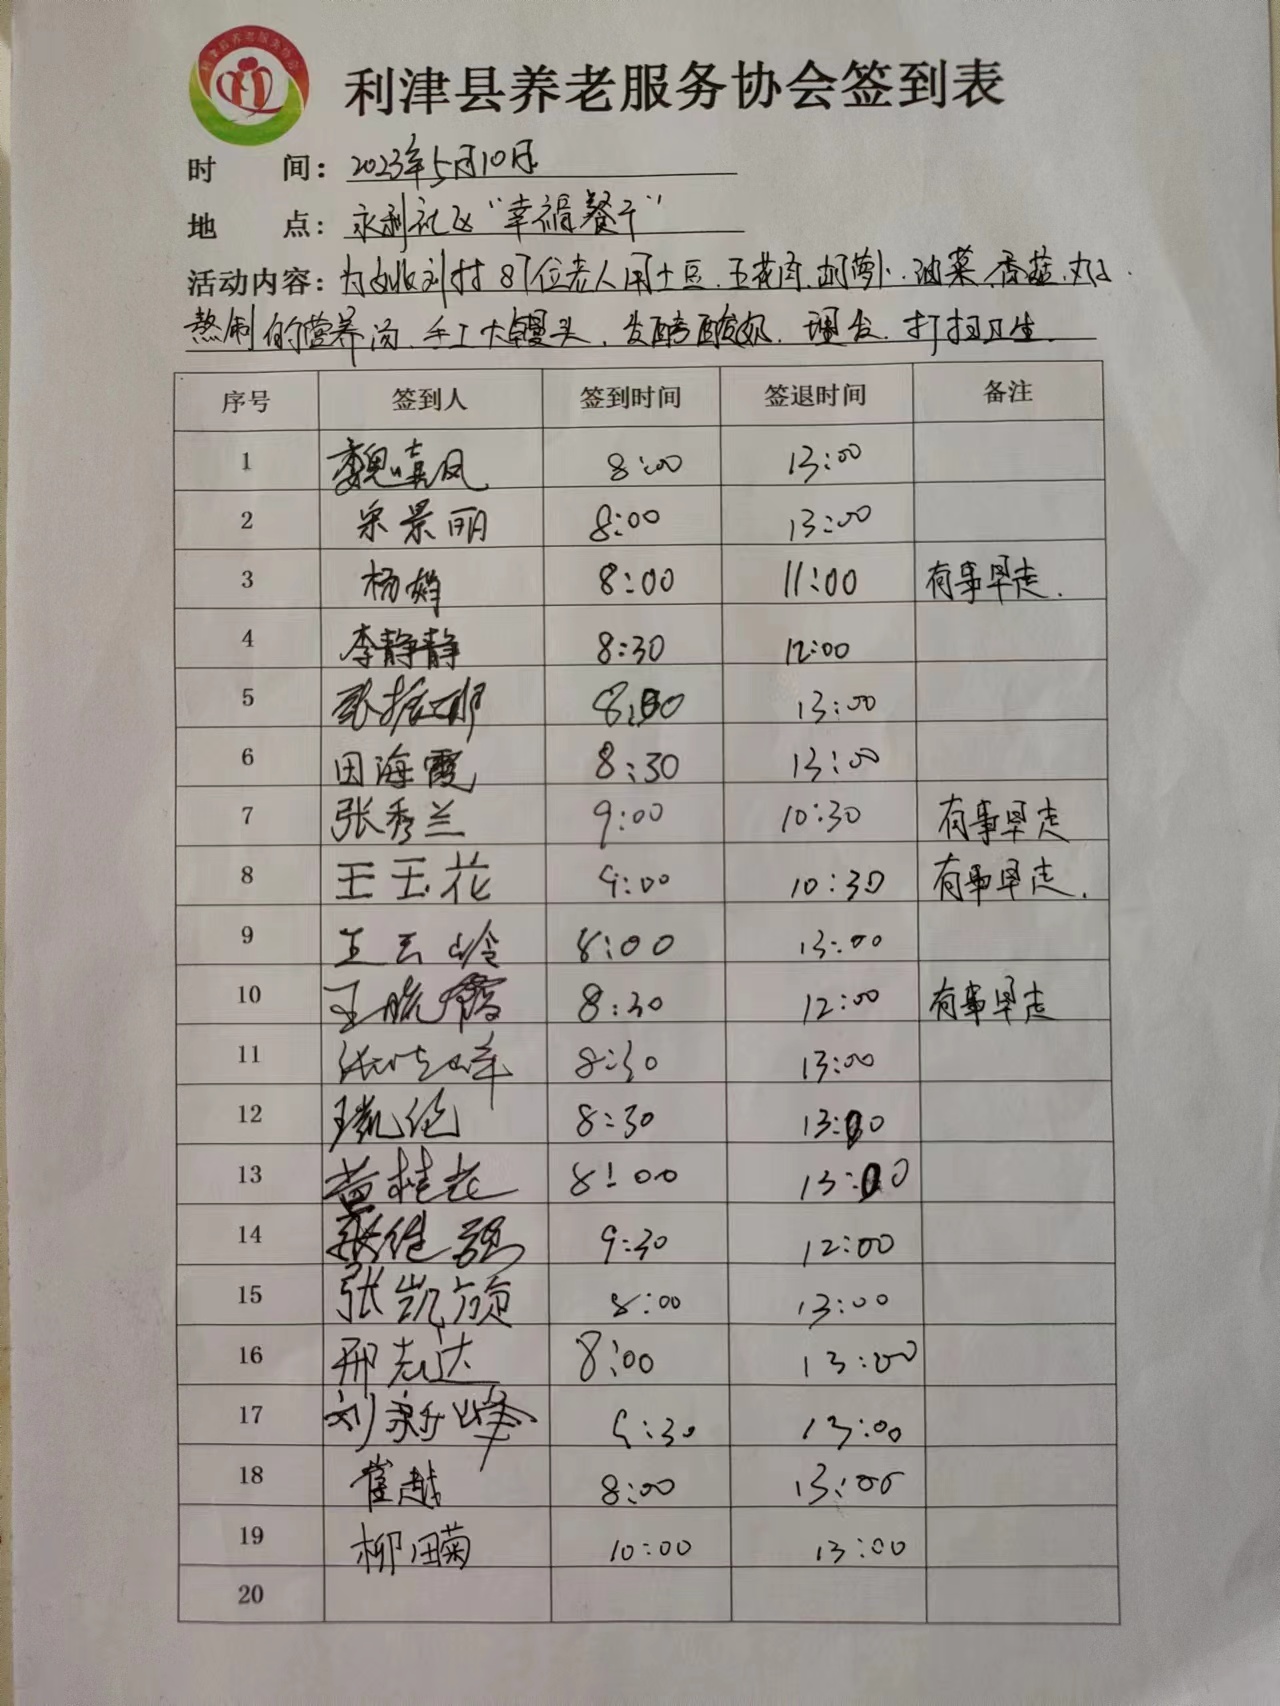 利津县养老服务协会
利津县养老服务协会签到表
时 间：2023年5月10日
地 点：永利社区“幸福餐厅”
活动内容：为 刘村 87位老人用土豆、五花肉、胡萝卜、油菜、香菇、
熬制的营养汤、手工大馒头、发酵酸奶、理发、打扫卫生.
序号 签到人 签到时间 签退时间 备注
1 魏嘻凤 8:00 13:00
2 宋景丽 8:00 13:00
3 杨娟 8:00 11:00 有事早走.
4 李静静 8:30 12:00
5 8:30 13:00
6 田海霞 8:30 13:00
7 张秀兰 9:00 10:30 有事早走
8 王玉花 9:00 10:30 有事早走.
9 王云岭 8:00 13:00
10 王晓霞 8:30 12:00 有事早走
11 8:30 13:00
12 8:30 13:00
13 黄桂花 8:00 13:00
14 张继强 9:30 12:00
15 张凯硕 8:00 13:00
16 邢志达 8:00 13:00
17 刘新峰 9:30 13:00
18 崔越 8:00 13:00
19 柳田菊 10:00 13:00
20